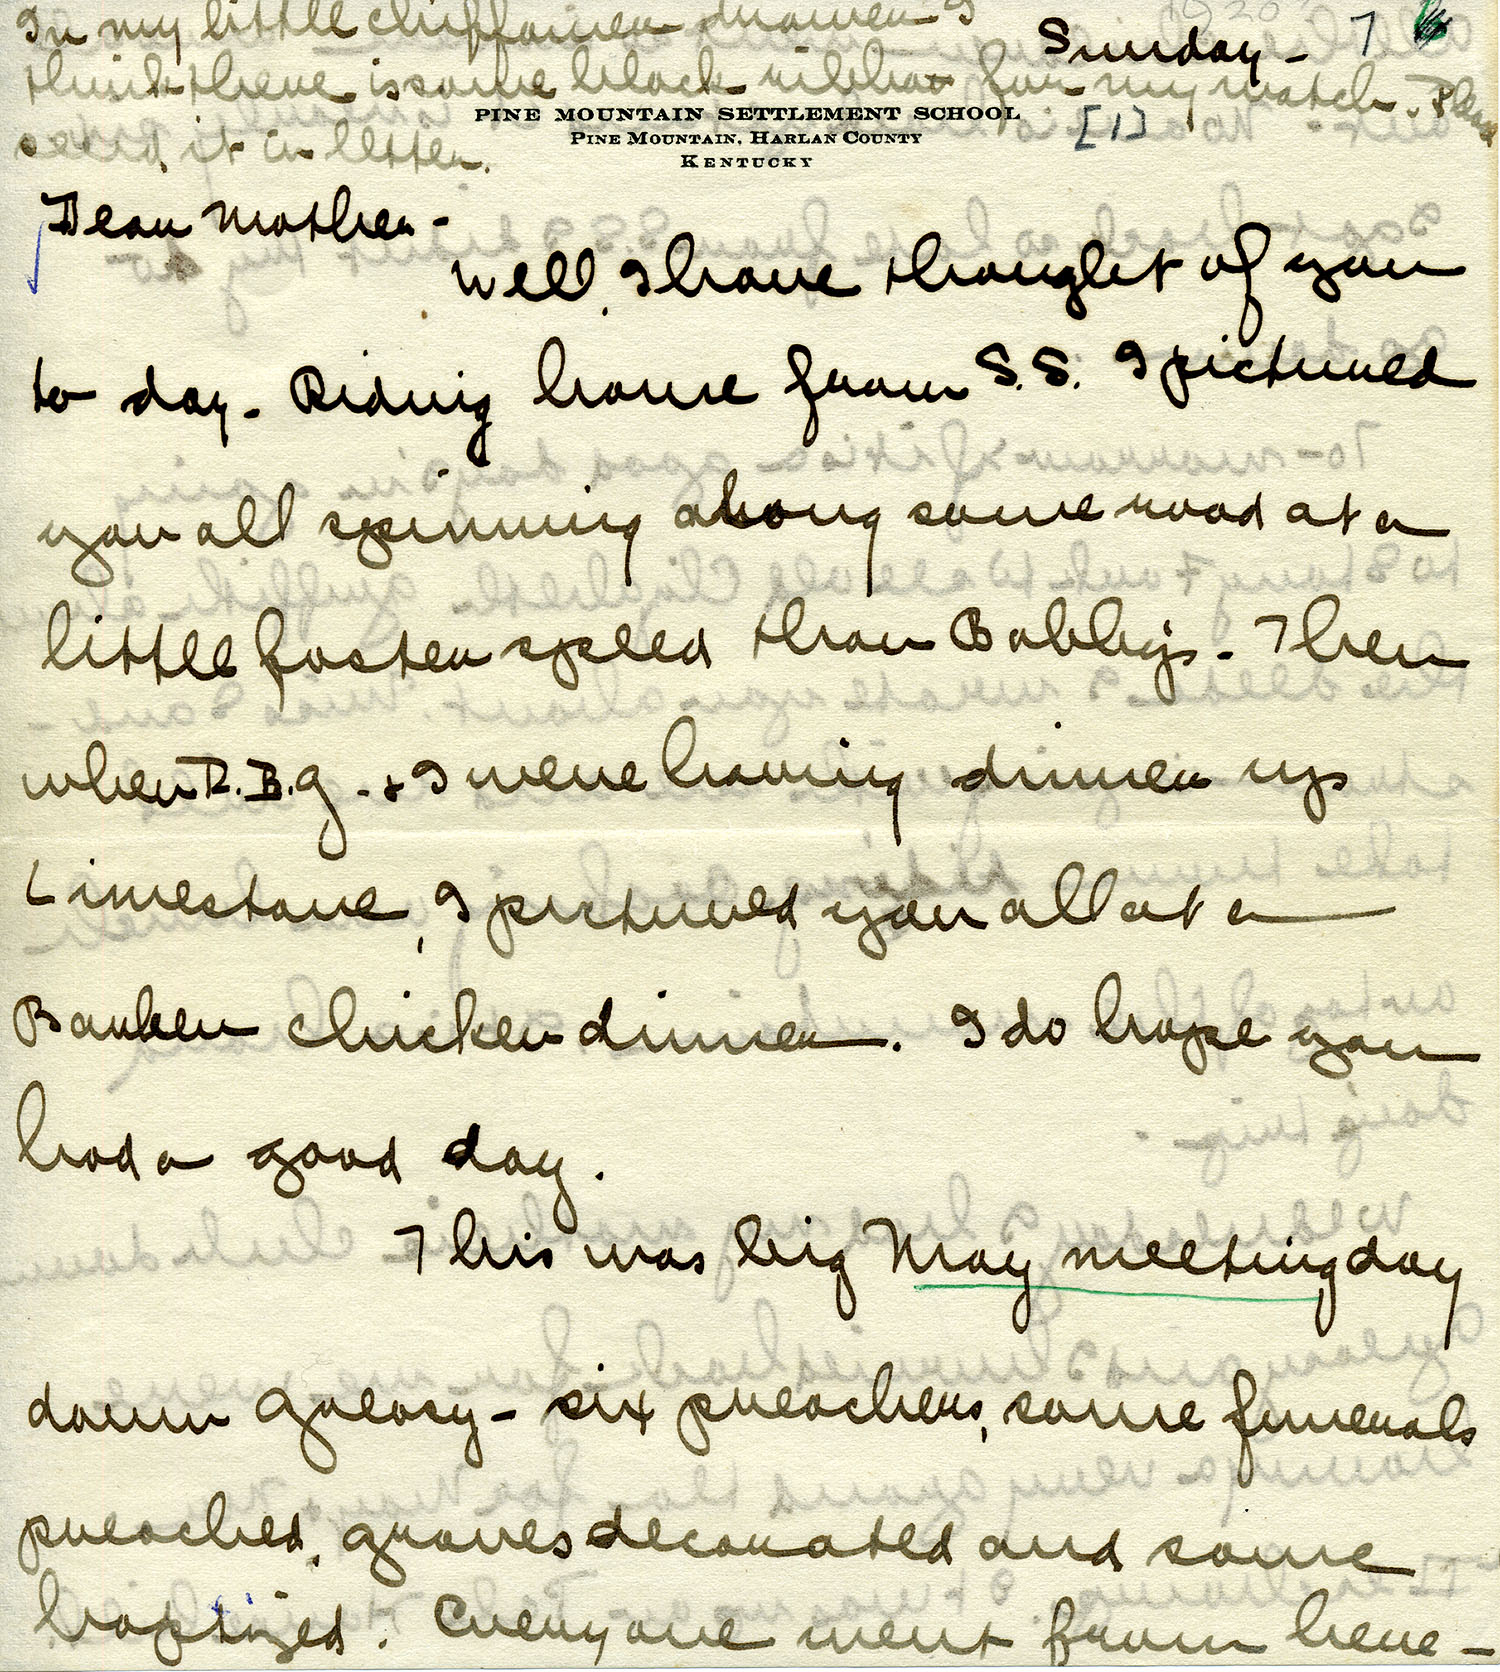 In my little chiffonier drawer I
think there is some black ribbon for my watch. Please
send it in letter.
Sunday - 7
PINE MOUNTAIN SETTLEMENT SCHOOL
PINE MOUNTAIN, HARLAN COUNTY
KENTUCKY
[1]
Dear Mother -
Well, I have thought of you
to day. Riding home from S.S. I pictured
you all spinning along some road at a
little faster speed than Bobby's. Then
when R.B.G. & I were having dinner up
Limestone, I pictured you all at a
Barber chicken dinner. I do hope you
had a good day.
This was big May meeting day
down Greasy - six preachers, some funerals
preached, graves decorated and some
baptized. Everyone went from here -